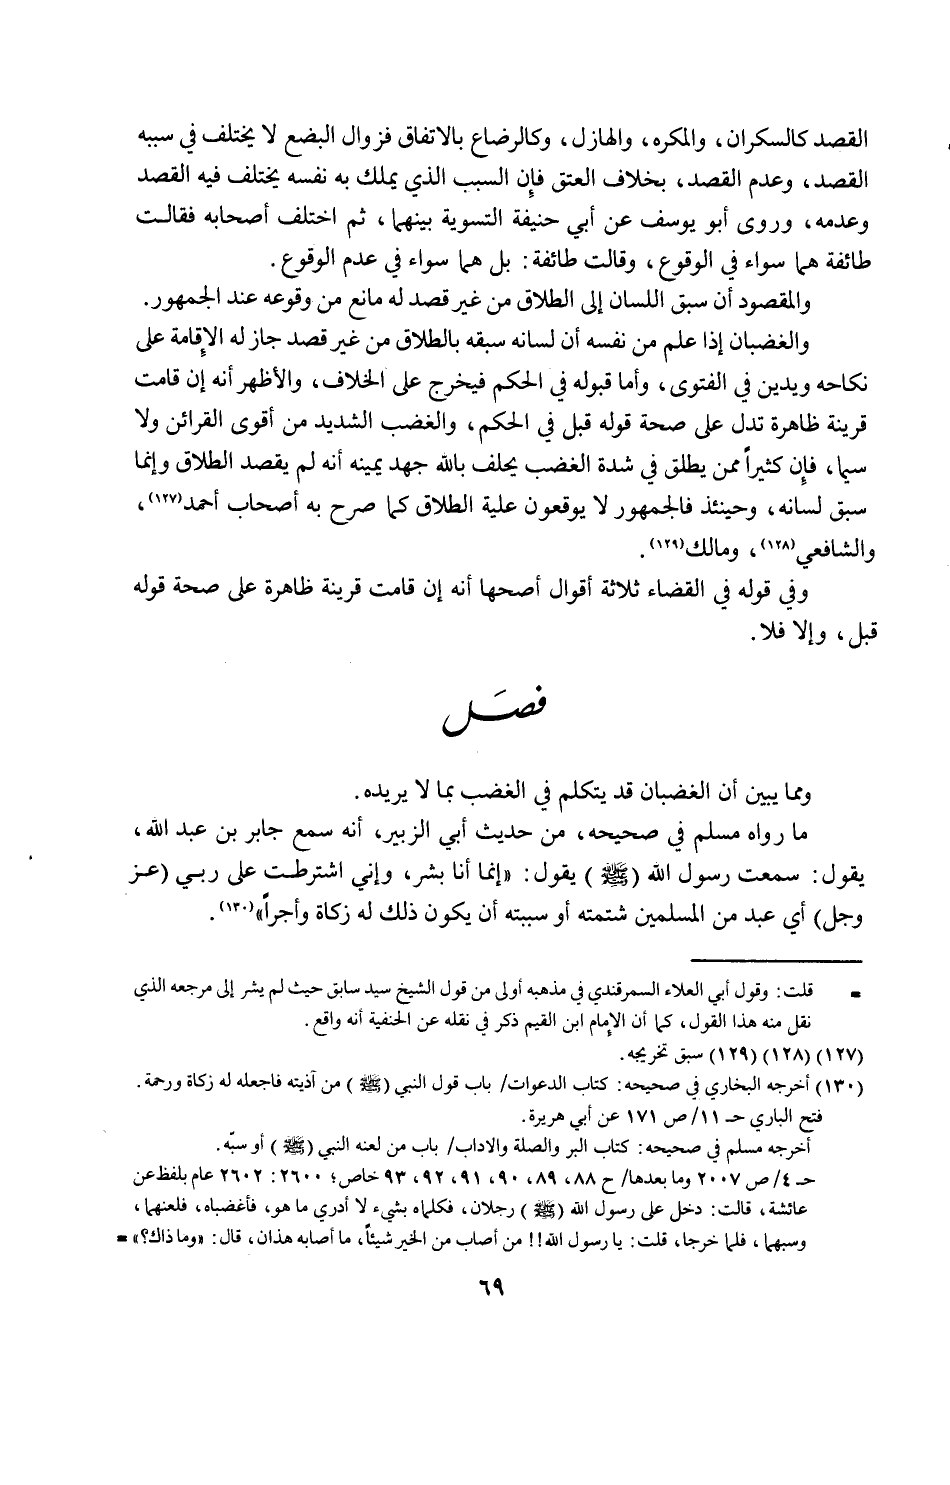 القصد كالسكران، والمكره، والهازل، وكالرضاع بالاتفاق فزوال البضع لا يختلف في سببه
القصد، وعدم القصد، بخلاف العتق فإن السبب الذي يملك به نفسه يختلف فيه القصد
وعدمه، وروى أبو يوسف عن أبي حنيفة التسوية بينهما، ثم اختلف أصحابه فقالت
طائفة هما سواء في الوقوع، وقالت طائفة: بل هما سواء في عدم الوقوع.
والمقصود أن سبق اللسان إلى الطلاق من غير قصد له مانع من وقوعه عند الجمهور.
والغضبان إذا علم من نفسه أن لسانه سبقه بالطلاق من غير قصد جاز له الإقامة على
نكاحه ويدين في الفتوى، وأما قبوله في الحكم فيخرج على الخلاف، والأظهر أنه إن قامت
قرينة ظاهرة تدل على صحة قوله قبل في الحكم، والغضب الشديد من أقوى القرائن ولا
سيما، فإن كثيراً ممن يطلق في شدة الغضب يحلف بالله جهد يمينه أنه لم يقصد الطلاق وإنما
سبق لسانه، وحينئذ فالجمهور لا يوقعون علية الطلاق كما صرح به أصحاب أحمد(١٢٧)،
والشافعي(١٢٨)، ومالك(١٢٩).
وفي قوله في القضاء ثلاثة أقوال أصحها أنه إن قامت قرينة ظاهرة على صحة قوله
قبل، وإلا فلا.
فصَل
ومما يبين أن الغضبان قد يتكلم في الغضب بما لا يريده.
ما رواه مسلم في صحيحه، من حديث أبي الزبير، أنه سمع جابر بن عبد الله،
يقول: سمعت رسول الله (ﷺ) يقول: «إنما أنا بشر، وإني اشترطت على ربي (عز
وجل) أي عبد من المسلمين شتمته أو سببته أن يكون ذلك له زكاة وأجراً»(١٣٠).
= قلت: وقول أبي العلاء السمرقندي في مذهبه أولى من قول الشيخ سيد سابق حيث لم يشر إلى مرجعه الذي
نقل منه هذا القول، كما أن الإمام ابن القيم ذكر في نقله عن الحنفية أنه واقع.
(١٢٧) (١٢٨) (١٢٩) سبق تخريجه.
(١٣٠) أخرجه البخاري في صحيحه: كتاب الدعوات/ باب قول النبي (ﷺ) من آذيته فاجعله له زكاة ورحمة.
فتح الباري حـ ١١/ ص ١٧١ عن أبي هريرة.
أخرجه مسلم في صحيحه: كتاب البر والصلة والاداب/ باب من لعنه النبي (ﷺ) أو سبّه.
حـ ٤/ ص ٢٠٠٧ وما بعدها/ ح ٨٨، ٨٩، ٩٠، ٩١، ٩٢، ٩٣ خاص؛ ٢٦٠٠: ٢٦٠٢ عام بلفظ عن
عائشة، قالت: دخل على رسول الله (ﷺ) رجلان، فكلماه بشيء لا أدري ما هو، فأغضباه، فلعنهما،
وسبهما، فلما خرجا، قلت: يا رسول الله!! من أصاب من الخير شيئاً، ما أصابه هذان، قال: «وما ذاك؟» =
٦٩